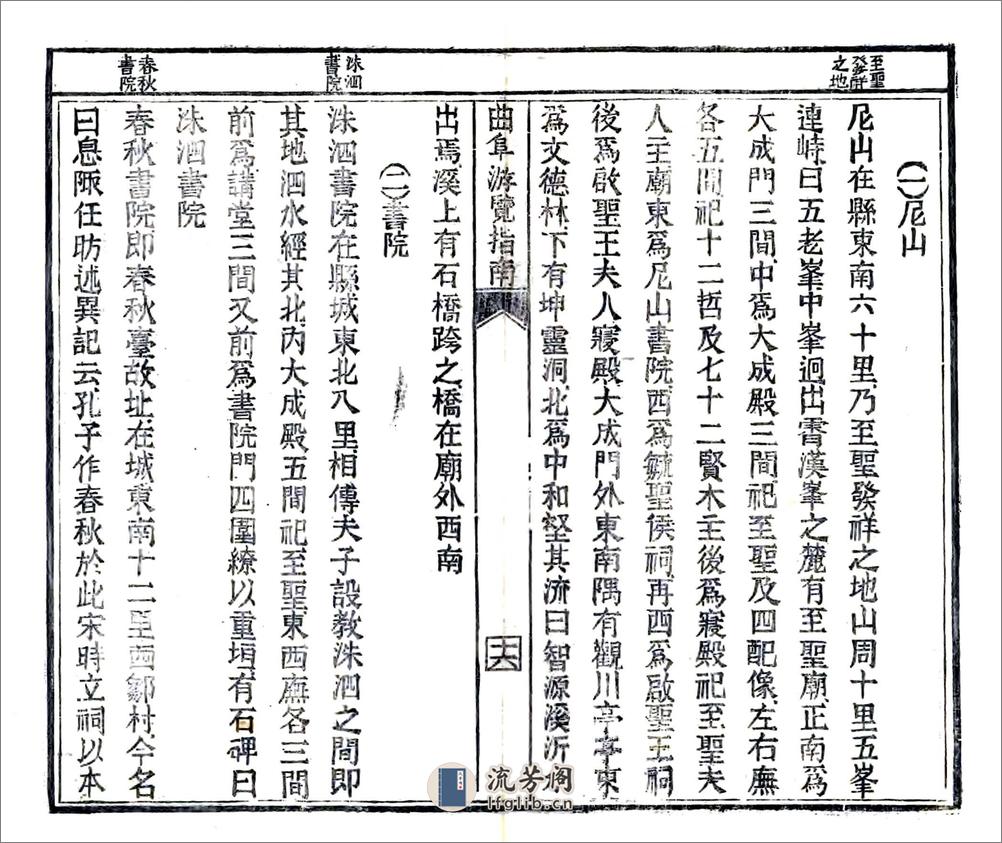 至聖
發祥
之地
(一)尼山
尼山在縣東南六十里、乃至聖發祥之地山周十里五峯
連峙曰五老峯、中峯迥出霄漢峯之麓有至聖廟、正南爲
大成門三間、中爲大成殿三間祀至聖及四配像、左右廡
各五間祀十二哲及七十二賢木主後爲寢殿祀至聖夫
人主廟東爲尼山書院、西爲毓聖侯祠、再西爲啟聖王祠
後爲啟聖王夫人寢殿、大成門外東南隅有觀川亭、亭東
爲文德林、下有坤靈洞、北爲中和壑其流曰智源溪沂
曲阜游覽指南
十六
出焉、溪上有石橋跨之橋在廟外西南
(二)書院
洙泗
書院
洙泗書院在縣城東北八里、相傳夫子設教洙泗之間即
其地泗水經其北、內大成殿五間祀至聖東西廡各三間
前爲講堂三間又前爲書院門四圍繚以重垣、有石碑曰
洙泗書院
春秋
書院
春秋書院即春秋臺故址、在城東南十二里西鄒村、今名
曰息陬任昉述異記云、孔子作春秋於此宋時立祠以本
流芳阁
lfglib.cn